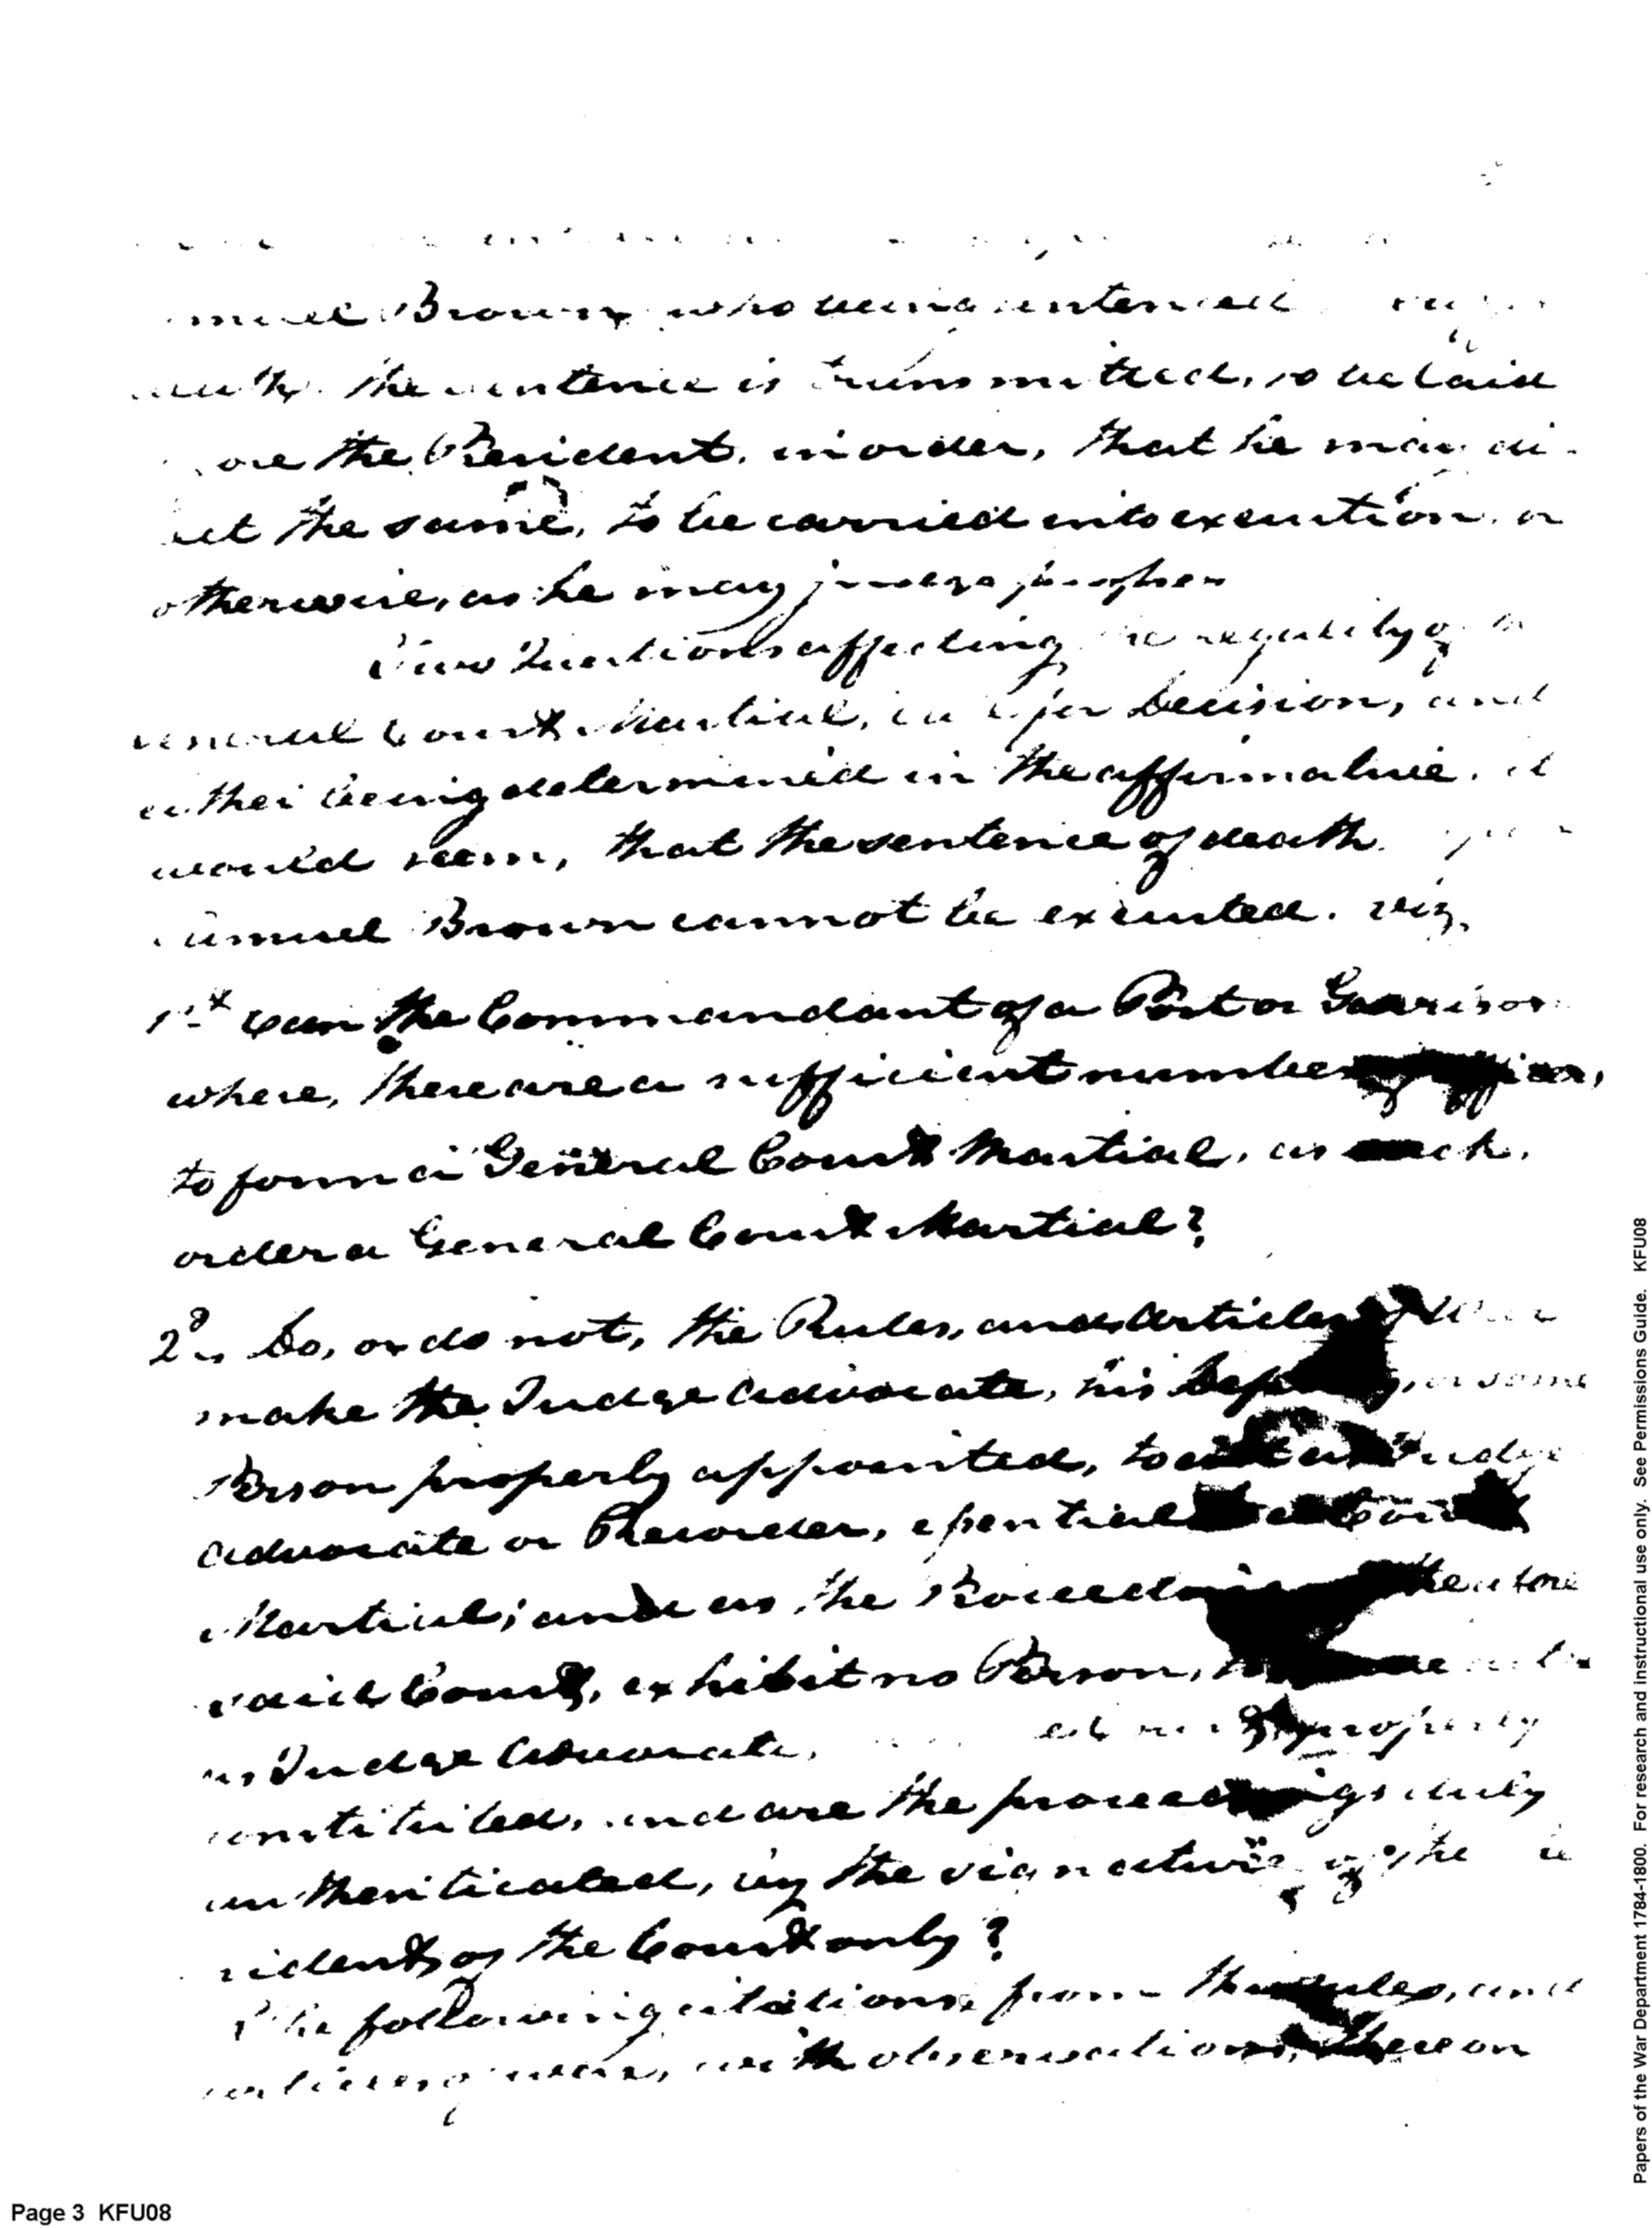 Brown who being sentenced
the sentence is transmitted, to be laid
the President, in order, that he may di-
the same, to be carried into execution, or
otherwise, as he may judge proper
Two Questions affecting the regularity of
Court Martial, call for Decision, and
either being determined in the affirmative, it
would seem, that the sentence of death
Samuel Brown cannot be executed. viz.
1st. Can the Commandant of a Post or Garrison
where, there are a sufficient number of officers,
to form a General Court Martial, as such,
order a General Court Martial?
2d. Do, or do not, the Rules, and Articles of War
make the Judge Advocate, his Deputy, or some
Person properly appointed, to act as Judge
Advocate or Recorder, essential to a Court
Martial; and as the Proceedings
said Court, exhibit no Person, to have
as Judge Advocate, properly
constituted, and are the proceedings duly
authenticated, by the signature of the
sident of the Court only?
The following citations from the Rules, and
war, with observations thereon
Page 3 KFU08
Papers of the War Department 1784-1800. For research and instructional use only. See Permissions Guide. KFU08